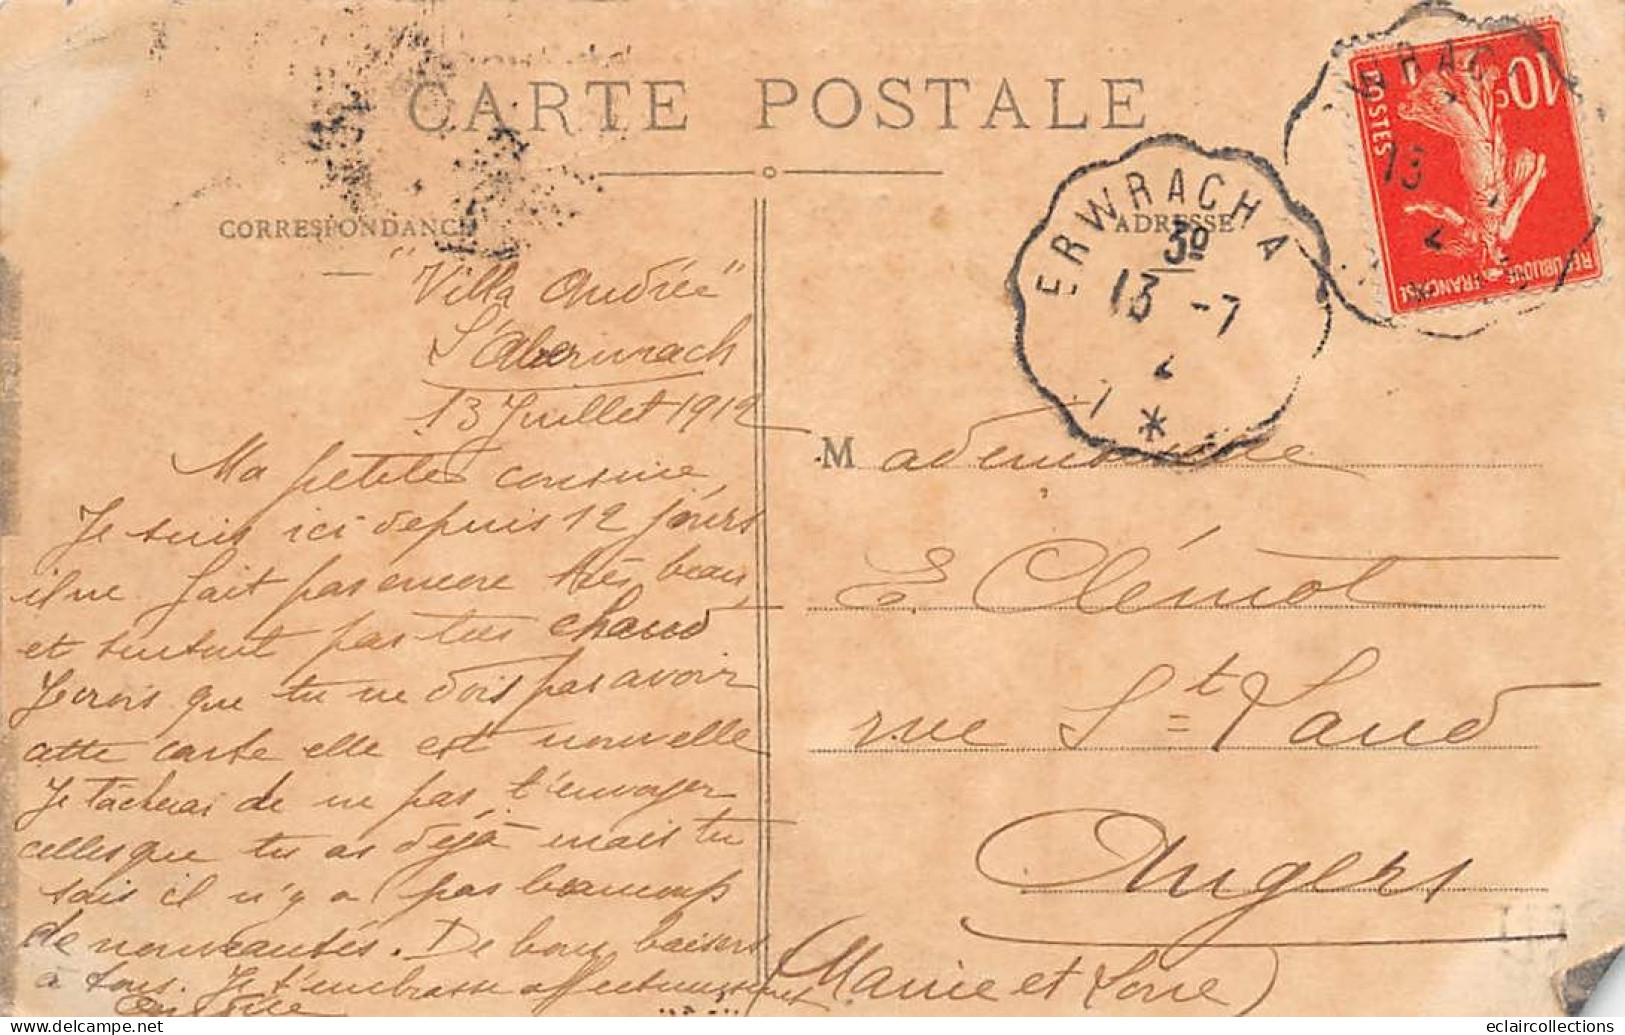 CARTE POSTALE
CORRESPONDANCE
ADRESSE
"Villa Andrée"
L'Aberwrach
13 Juillet 1912
Ma petite cousine
Je suis ici depuis 12 jours
il ne fait pas encore très beau,
et surtout pas très chaud
Je crois que tu ne dois pas avoir
cette carte elle est nouvelle
Je tâcherai de ne pas t'envoyer
celles que tu as déjà mais tu
sais il n'y a pas beaucoup
de nouveautés. De bons baisers
à tous. Je t'embrasse affectueusement
Andrée
ERWRACH A
30
13 -7
POSTES
10c
REPUBLIQUE FRANÇAISE
WRAC
13
Mademoiselle
E Clémot
rue St Laud
Angers
(Maine et Loire)
eclaircollections